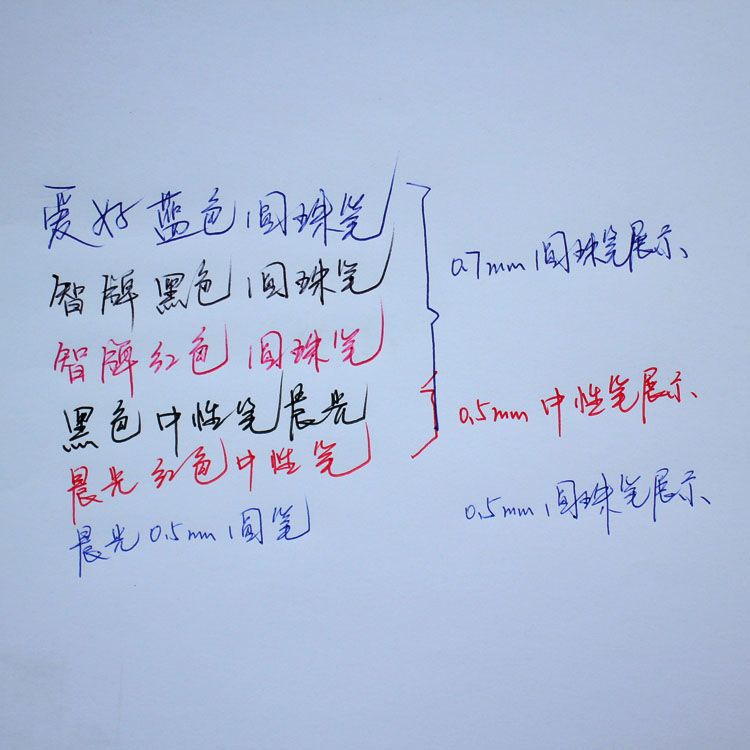 爱好蓝色圆珠笔
智牌黑色圆珠笔
智牌红色圆珠笔
0.7mm圆珠笔展示
黑色中性笔晨光
晨光红色中性笔
0.5mm中性笔展示
晨光0.5mm圆笔
0.5mm圆珠笔展示